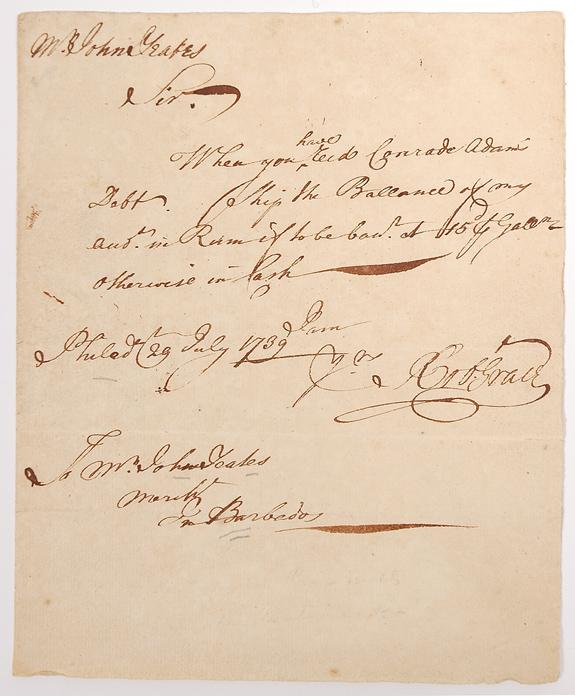 Mr. John Yeates
Sir.
When you have recd Conrade Adams
Debt. Ship the Ballance of my
acct. in Rum if to be had. at 15d ℔ Gallon
otherwise in Cash
Philada 29 July 1739 I am
yor Robt. Grace
To Mr. John Yeates
Mercht
In Barbados